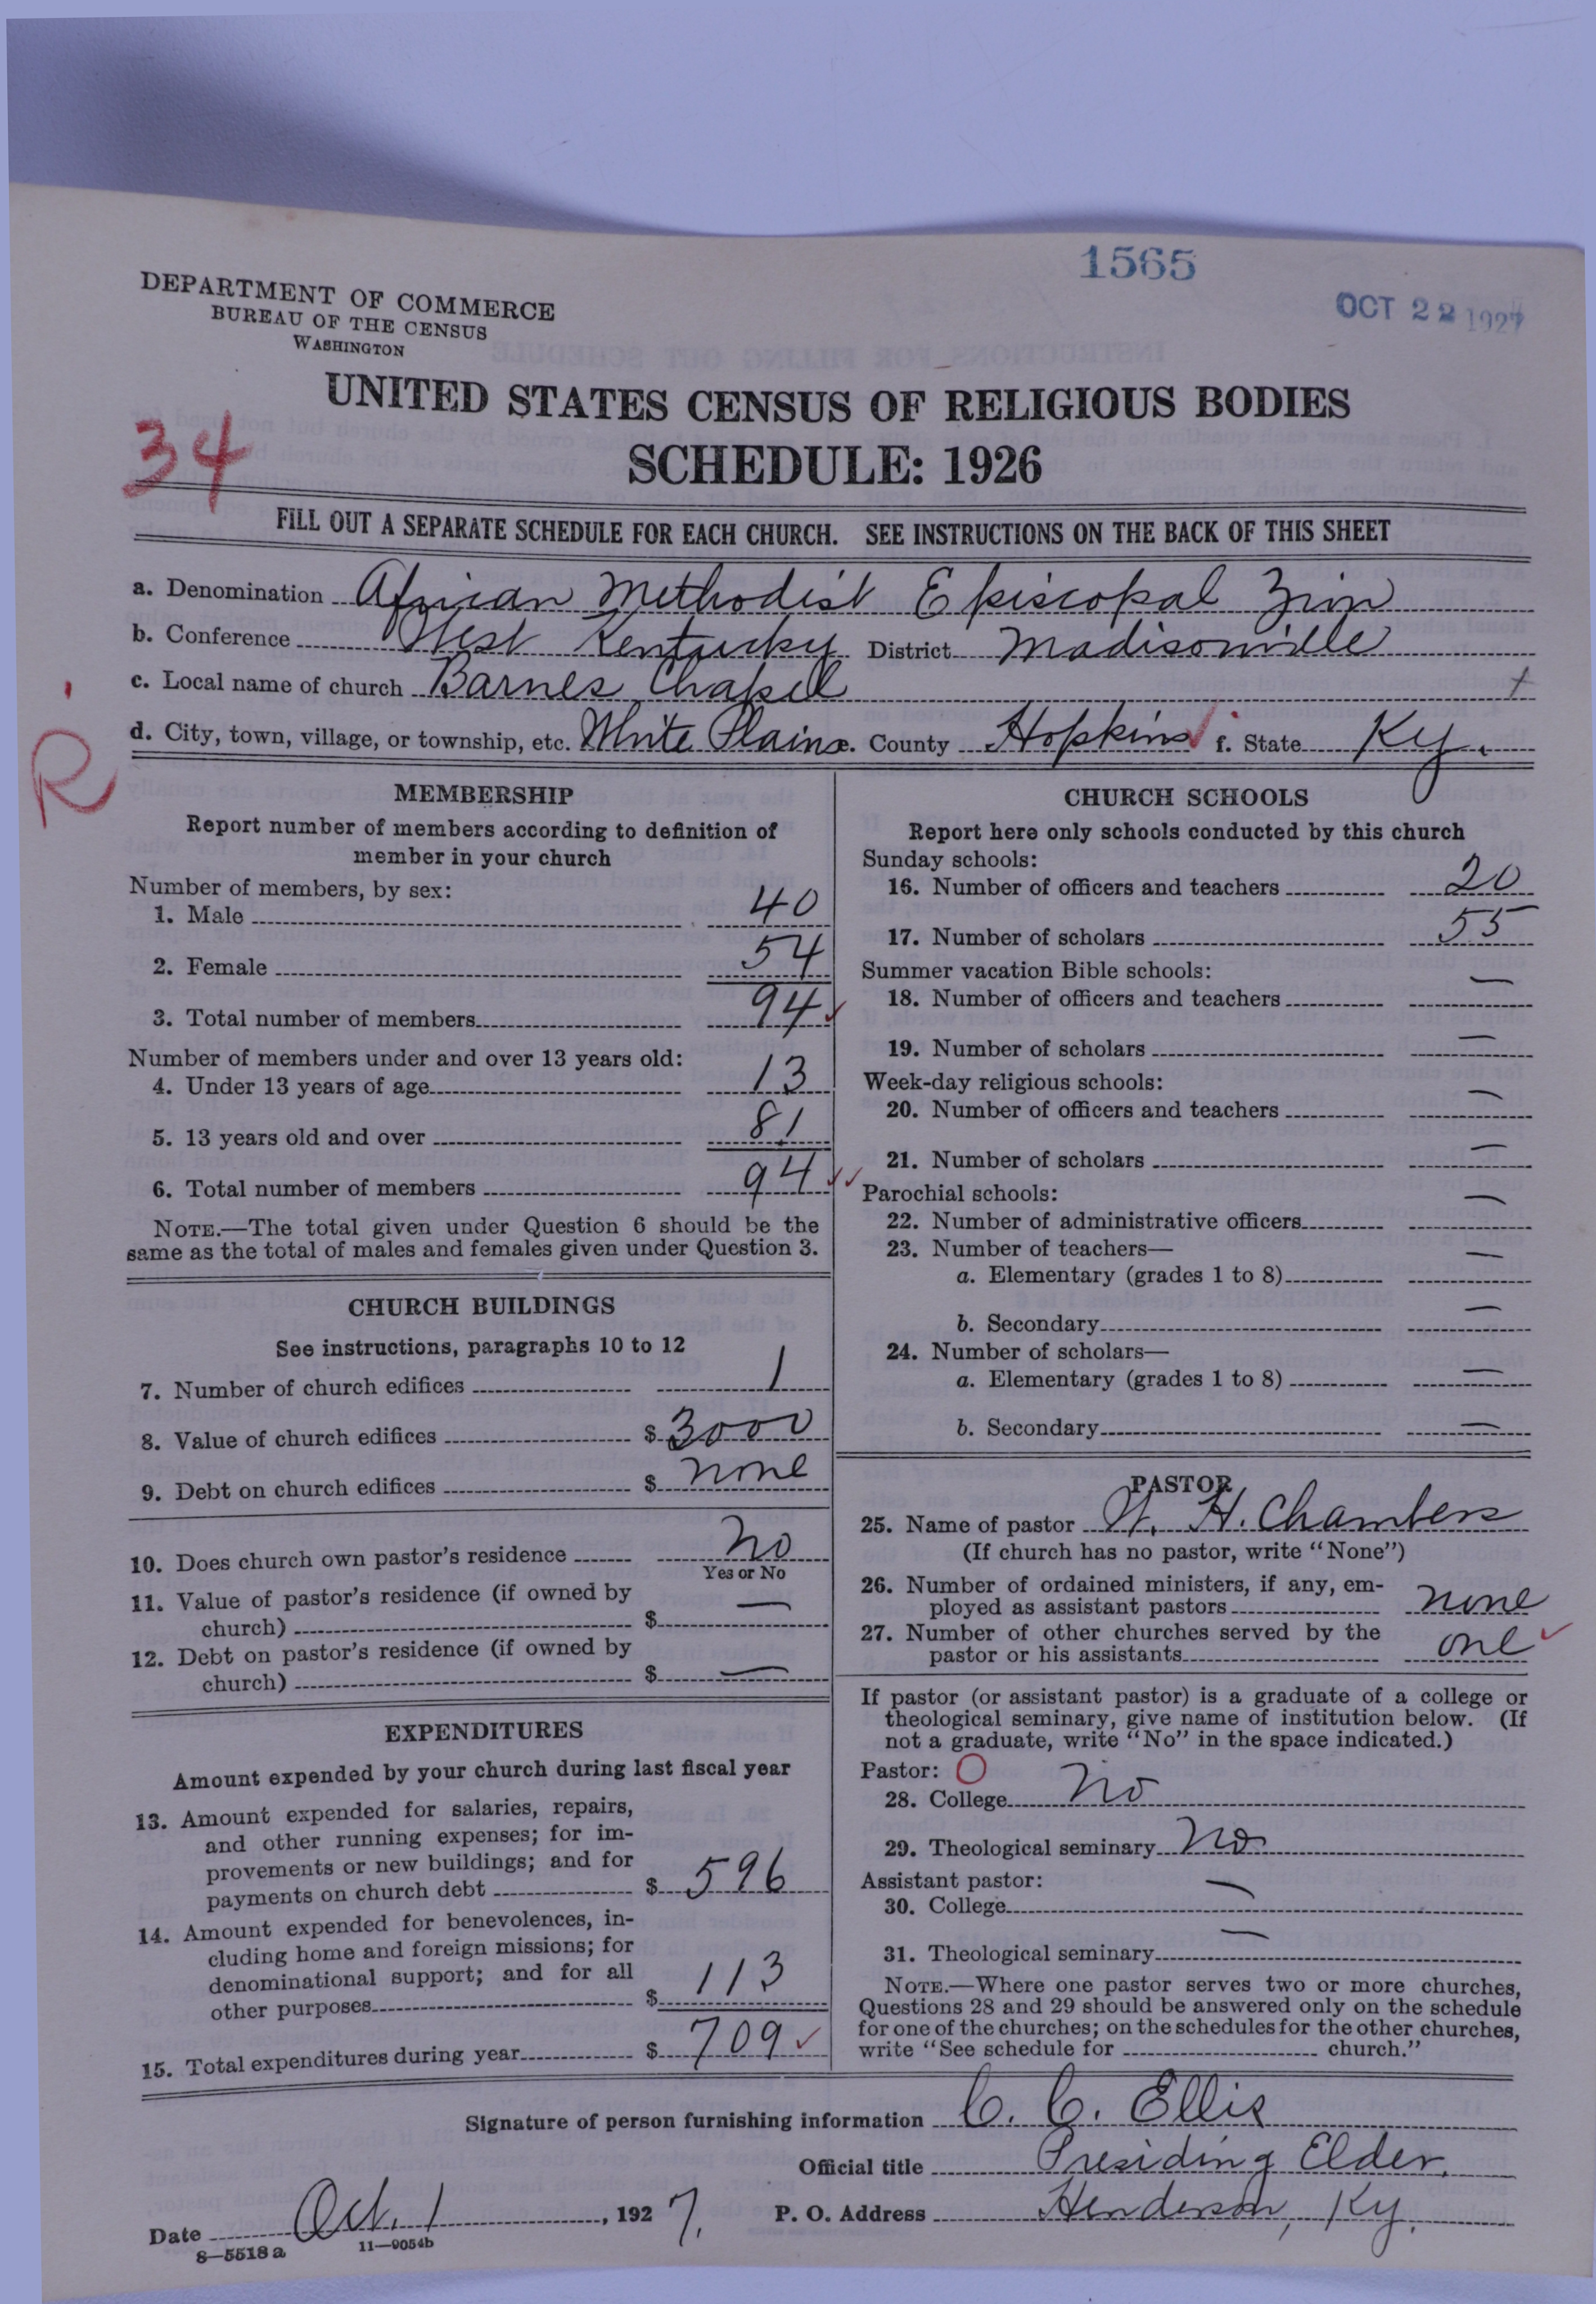 1565
OCT 22 1927
DEPARTMENT OF COMMERCE
BUREAU OF THE CENSUS
WASHINGTON
UNITED STATES CENSUS OF RELIGIOUS BODIES
34
SCHEDULE: 1926
FILL OUT A SEPARATE SCHEDULE FOR EACH CHURCH. SEE INSTRUCTIONS ON THE BACK OF THIS SHEET
a. Denomination African Methodist Episcopal Zion
b. Conference West Kentucky District Madisonville
c. Local name of church Barnes Chapel
d. City, town, village, or township, etc. White Plains e. County Hopkins f. State Ky.
R
MEMBERSHIP
Report number of members according to definition of
member in your church
Number of members, by sex:
1. Male 40
2. Female 54
3. Total number of members 94
Number of members under and over 13 years old:
4. Under 13 years of age 13
5. 13 years old and over 81
6. Total number of members 94
NOTE.—The total given under Question 6 should be the
same as the total of males and females given under Question 3.
CHURCH BUILDINGS
See instructions, paragraphs 10 to 12
7. Number of church edifices 1
8. Value of church edifices $ 3000
9. Debt on church edifices $ none
10. Does church own pastor's residence No
Yes or No
11. Value of pastor's residence (if owned by
church) $ —
12. Debt on pastor's residence (if owned by
church) $ —
EXPENDITURES
Amount expended by your church during last fiscal year
13. Amount expended for salaries, repairs,
and other running expenses; for im-
provements or new buildings; and for
payments on church debt $ 596
14. Amount expended for benevolences, in-
cluding home and foreign missions; for
denominational support; and for all
other purposes $ 113
15. Total expenditures during year $ 709
CHURCH SCHOOLS
Report here only schools conducted by this church
Sunday schools:
16. Number of officers and teachers 20
17. Number of scholars 55
Summer vacation Bible schools:
18. Number of officers and teachers —
19. Number of scholars —
Week-day religious schools:
20. Number of officers and teachers —
21. Number of scholars —
Parochial schools:
22. Number of administrative officers —
23. Number of teachers—
a. Elementary (grades 1 to 8) —
b. Secondary —
24. Number of scholars—
a. Elementary (grades 1 to 8) —
b. Secondary —
PASTOR
25. Name of pastor W. H. Chambers
(If church has no pastor, write "None")
26. Number of ordained ministers, if any, em-
ployed as assistant pastors none
27. Number of other churches served by the
pastor or his assistants one
If pastor (or assistant pastor) is a graduate of a college or
theological seminary, give name of institution below. (If
not a graduate, write "No" in the space indicated.)
Pastor: O
28. College No
29. Theological seminary No
Assistant pastor:
30. College —
31. Theological seminary —
NOTE.—Where one pastor serves two or more churches,
Questions 28 and 29 should be answered only on the schedule
for one of the churches; on the schedules for the other churches,
write "See schedule for church."
Signature of person furnishing information C. C. Ellis
Official title Presiding Elder.
Date Oct. 1, 1927. P. O. Address Henderson, Ky.
8—5518 a 11—9054b